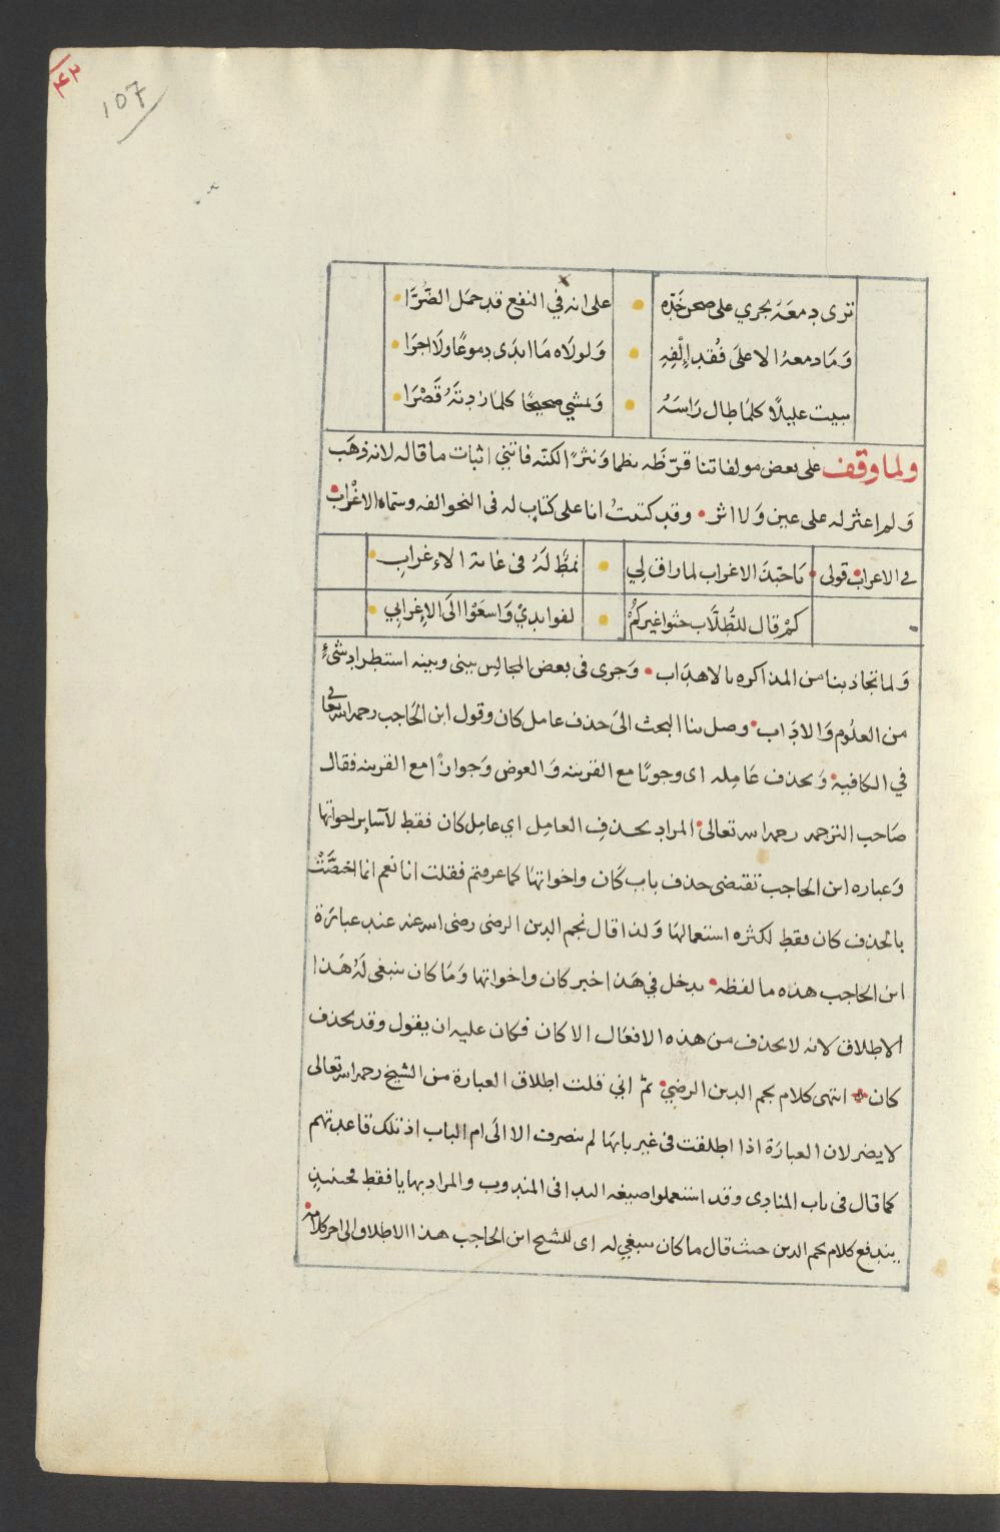 ٤٢
107
ترى دمعَهُ يجري على صحن خَدِّه • على انه في النفع قد حمَل الضُرَّا •
وَمَا دمعهُ الا على فُقد إِلْفِهِ • وَلولاَه مَا ابدَى دموعًا ولَا اجرَا •
يبيت عليلًا كلمَا طال رَاسَهُ • وَيمشي صحيحًا كلما زدتَهُ قَصْرَا •
ولما وقف على بعض مولفاتنا قرّظه نظما وَنثرًا لكنه فاتني اثبات ما قاله لانه ذهَب
وَلم اعثر له على عين وَلا اثر • وقد كتبتُ انا على كتاب له فى النحو الفه وسماه الاغْراب
في الاعراب قولى • يَا حبّذَ الاغراب لما راق لي • نمطٌ لَهُ فى غاية الاءغرابِ •
كمْ قال للطُّلَّاب حثوا غيركمْ • لفوايديْ وَاسعَوْا الَى الاِغرابي •
وَلما تجاذبنا من المذاكره بالاهدَاب • وَجرى فى بعض المجالس بينى وبينه استطراد شىءٍ
من العلُوم وَالادَاب • وصل بنا البحث الىَ حذف عامل كان وقول ابن الحَاجب رحمه الله تعا
في الكافية • وَيحذف عَامِله اى وجوبًا مع القرينه وَالعوض وَجوازًا مع القرينه فقال
صَاحب الترجمه رحمه الله تعالى • المراد بحذفِ العامِل اي عامِل كان فقط لا سَاير اخواتها
وَعباره ابن الحاجب تقتضى حذف باب كَان واخواتها كما عرفتم فقلت انا نعم انما اختصَّتْ
بالحذف كان فقط لكثره استعمالهَا وَلذا قال نجم الدين الرضى رضى الله عنه عند عبارَة
ابن الحاجب هذه ما لفظه • يدخل في هَذا خبر كان واخواتها وَمَا كان ينبغى لَهُ هَذا
الاطلاق لانه لا يحذف من هذه الافعَال الا كان فكان عليه ان يقول وقد يحذف
كان • انتهى كلام نجم الدين الرضي • ثمّ اني قلت اطلاق العبارة من الشيخ رحمه الله تعالى
لا يضر لان العبارَة اذا اطلقت فى غير بابهَا لم ينصرف الا الىَ ام الباب اذ تلك قاعدتهم
كما قال فى باب المنادى وقد استعملوا صيغه الندا فى المندوب والمراد بها يا فقط فحينئذٍ
يندفع كلام نجم الدين حيث قال ما كان ينبغي له اى للشيخ ابن الحاجب هذا الاطلاق الى اخر كلامه •